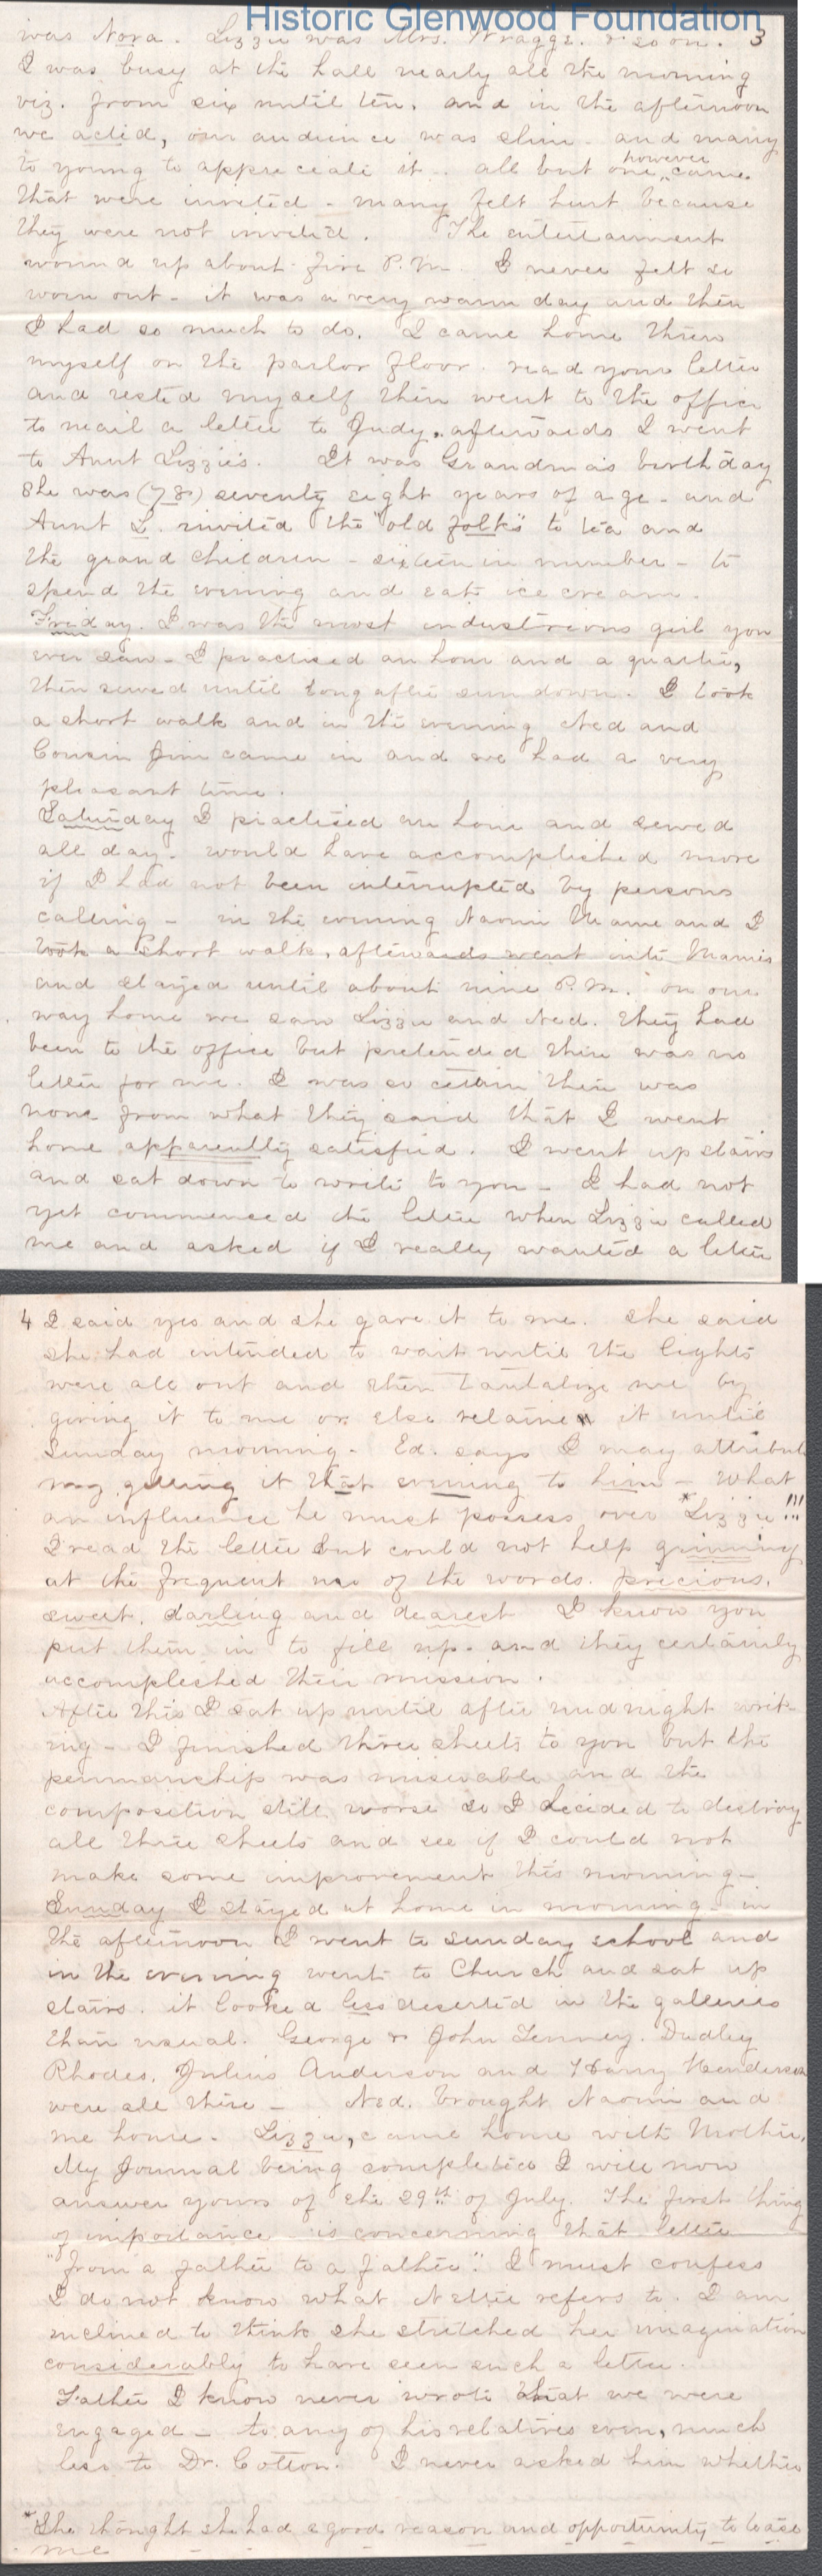 Historic Glenwood Foundation
was Nora. Lizzie was Mrs. Wragge. & so on. 3
I was busy at the hall nearly all the morning
viz. from six until ten. and in the afternoon
we acted, our audience was slim - and many
to young to appreciate it. all but one however came
that were invited - many felt hurt because
they were not invited. The entertainment
wound up about five P.M. I never felt so
worn out - it was a very warm day and then
I had so much to do. I came home threw
myself on the parlor floor. read your letter
and rested myself then went to the office
to mail a letter to Judy. afterwards I went
to Aunt Lizzie's. It was Grandma's birthday
She was (78) seventy eight years of age - and
Aunt L. invited the "old folks" to tea and
the grand children - sixteen in number - to
spend the evening and eat ice cream.
Friday. I was the most industrious girl you
ever saw - I practised an hour and a quarter,
then sewed until long after sun down. I took
a short walk and in the evening Ned and
Cousin Jim came in and we had a very
pleasant time.
Saturday I practised an hour and sewed
all day. would have accomplished more
if I had not been interrupted by persons
calling - in the evening Naomi Mame and I
took a short walk, afterwards went into Mamie's
and stayed until about nine P.M. on our
way home we saw Lizzie and Ned. they had
been to the office but pretended there was no
letter for me. I was so certain there was
none from what they said that I went
home apparently satisfied. I went up stairs
and sat down to write to you - I had not
yet commenced the letter when Lizzie called
me and asked if I really wanted a letter
4 I said yes and she gave it to me. she said
she had intended to wait until the lights
were all out and then tantalize me by
giving it to me or else retaine it until
Sunday morning - Ed. says I may attribute
my getting it that evening to him - what
an influence he must possess over *Lizzie!!!
I read the letter but could not help grinning
at the frequent use of the words. precious,
sweet, darling and dearest I know you
put them in to fill up. and they certainly
accomplished their mission.
After this I sat up until after midnight writ-
ing - I finished three sheets to you but the
penmanship was miserable and the
composition still worse so I decided to destroy
all three sheets and see if I could not
make some improvement this morning -
Sunday I stayed at home in morning - in
the afternoon I went to sunday school and
in the evening went to Church and sat up
stairs. it looked less deserted in the galleries
than usual. George & John Tenney. Dudley
Rhodes, Julius Anderson and Harry Henderson
were all there - Ned. brought Naomi and
me home. Lizzie, came home with Mother.
My Journal being completed I will now
answer yours of the 29th of July. The first thing
of importance is concerning that letter
"from a father to a father". I must confess
I do not know what Nettie refers to. I am
inclined to think she stretched her imagination
considerably to have seen such a letter.
Father I know never wrote that we were
engaged - to any of his relatives even, much
less to Dr. Cotton. I never asked him whether
*She thought she had a good reason and opportunity to tease
me